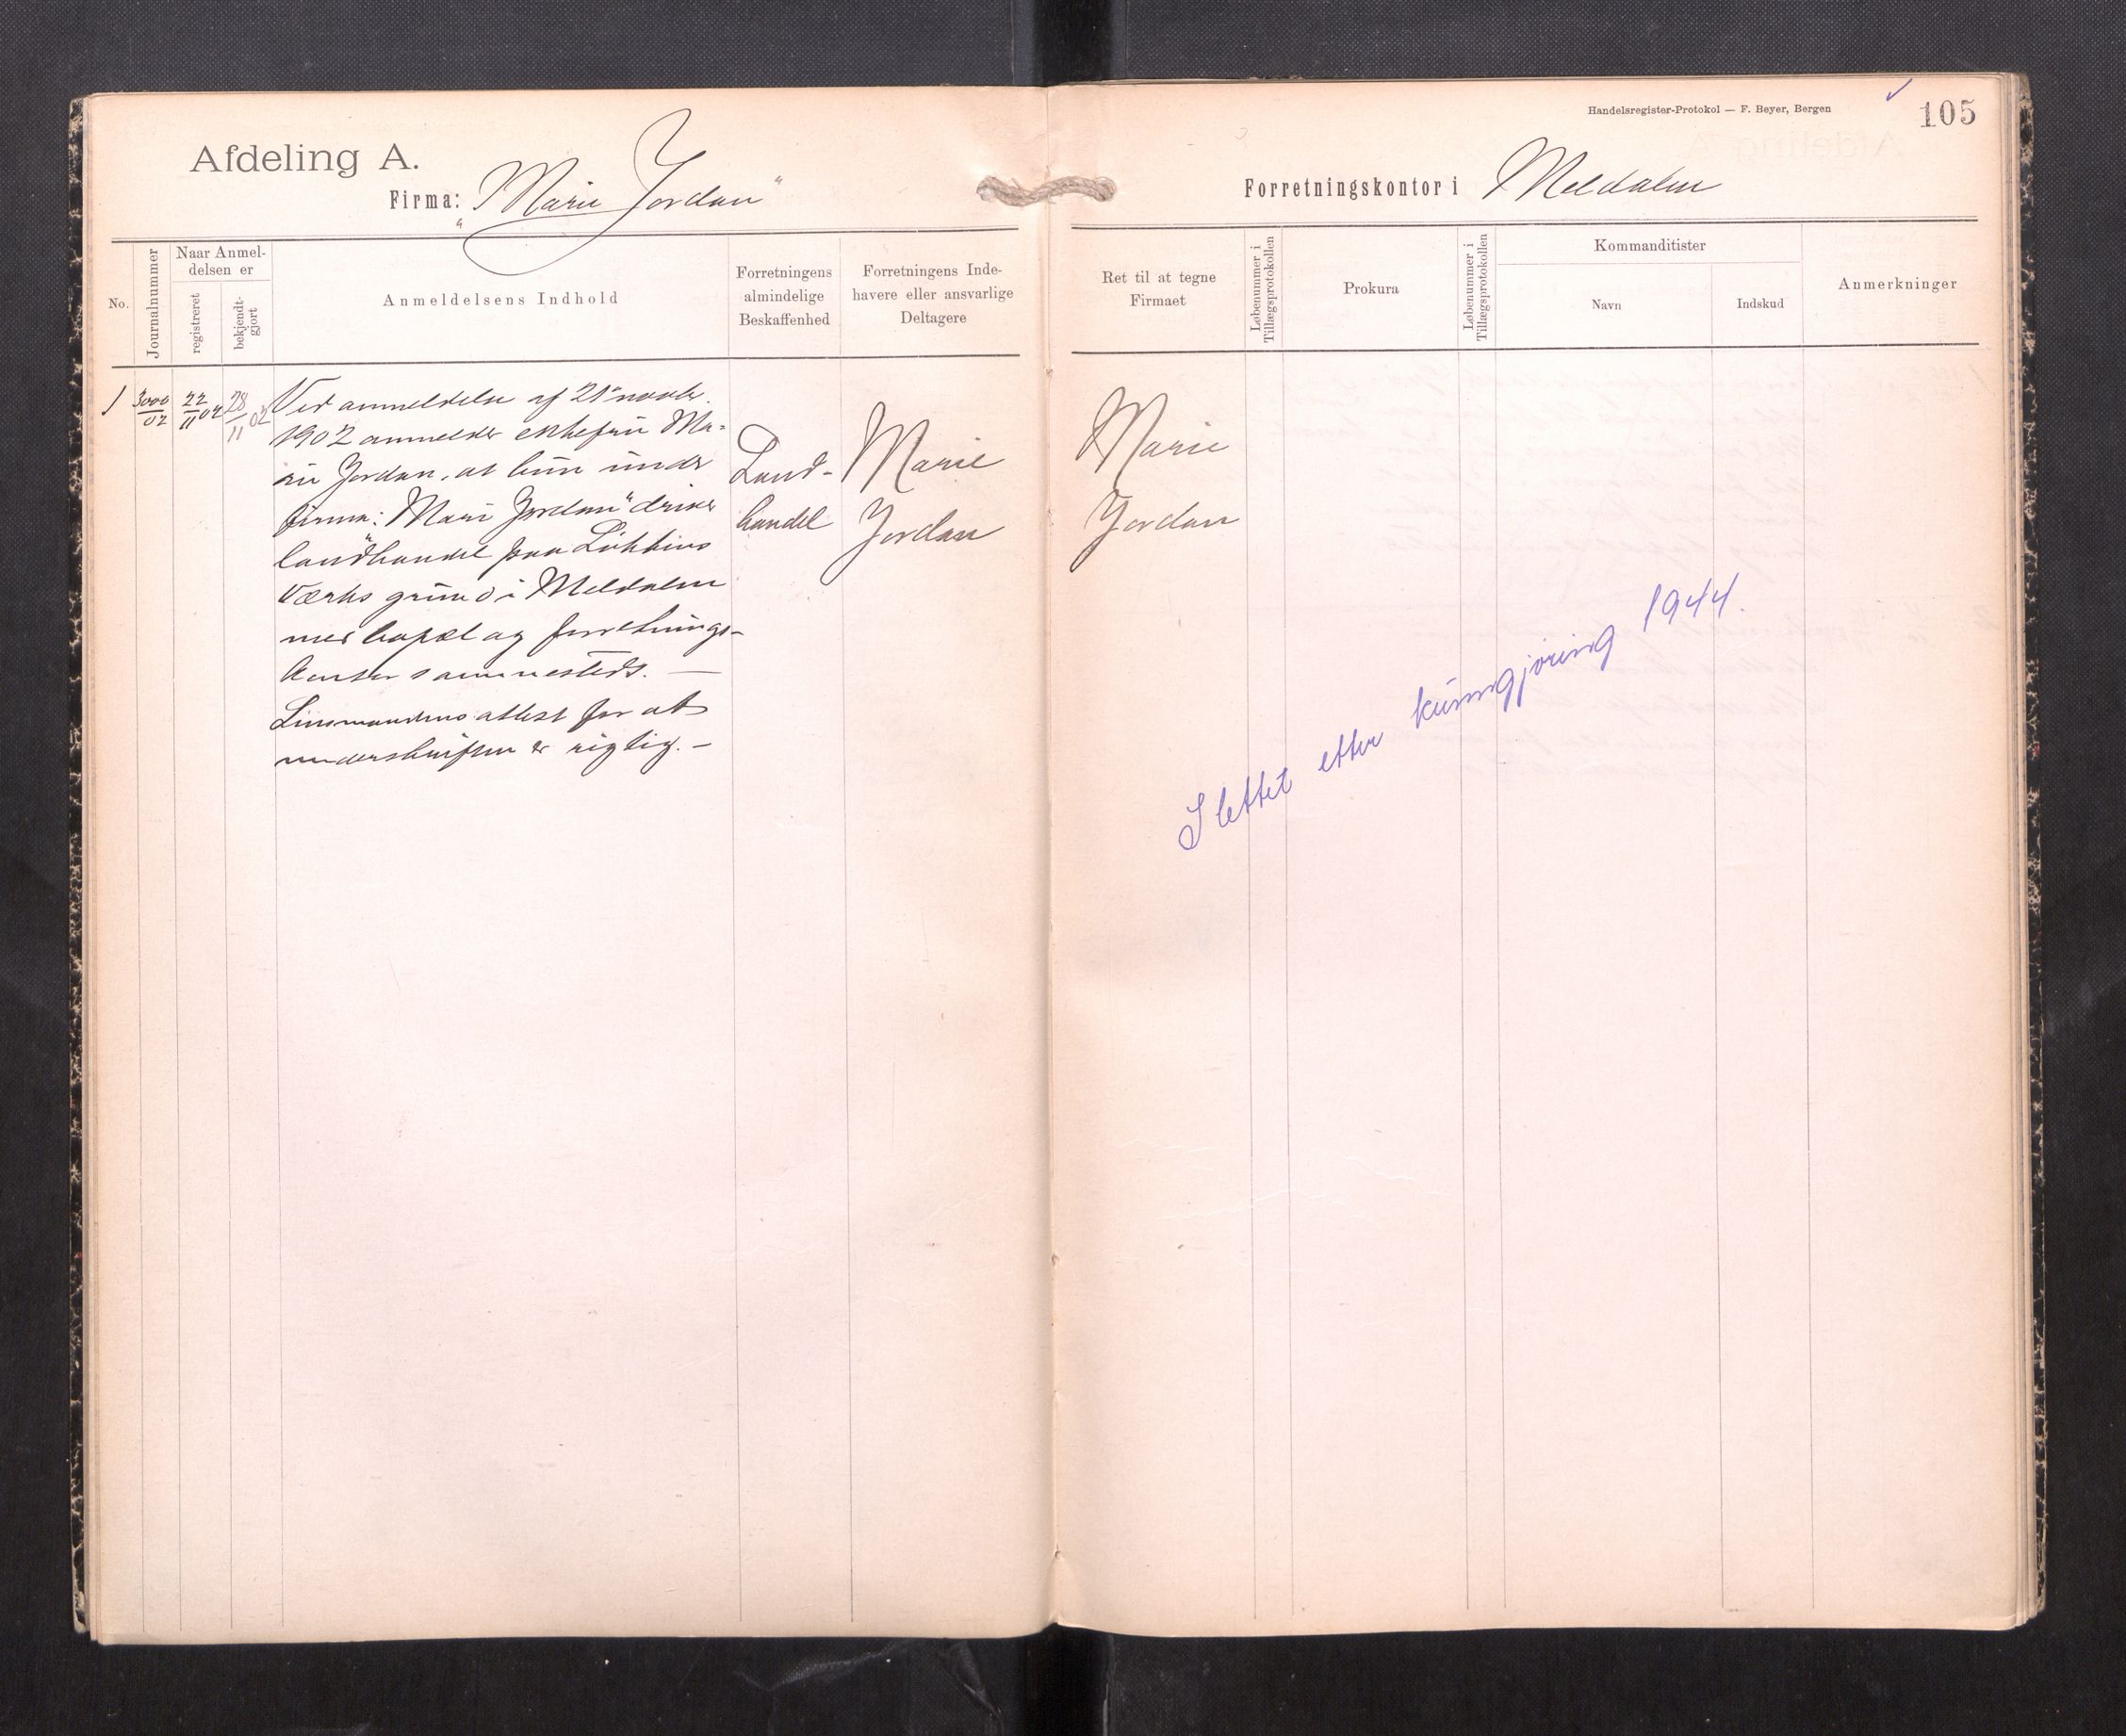 Afdeling A.
Firma: „Marie Jordan"
No.
Journalnummer
Naar Anmel-
delsen er
registreret
bekjendt-
gjort
Anmeldelsens Indhold
Forretningens
almindelige
Beskaffenhed
Forretningens Inde-
havere eller ansvarlige
Deltagere
1
3000/02
22/11 02
28/11 02
Ved anmeldelse af 21 novbr.
1902 anmelder ektefrue Ma-
rie Jordan, at hun under
firma: „Marie Jordan" driver
landhandel paa Løkkens
Værks grund i Meldalen
med bopæl og forretnings-
kontor sammesteds. —
Linsmandens attest for at
underskriften er rigtig. —
Land-
handel
Marie
Jordan
Handelsregister-Protokol — F. Beyer, Bergen
105
Forretningskontor i Meldalen
Ret til at tegne
Firmaet
Løbenummer i
Tillægsprotokollen
Prokura
Løbenummer i
Tillægsprotokollen
Kommanditister
Navn
Indskud
Anmerkninger
Marie
Jordan
Slettet etter kunngjøring 1944.